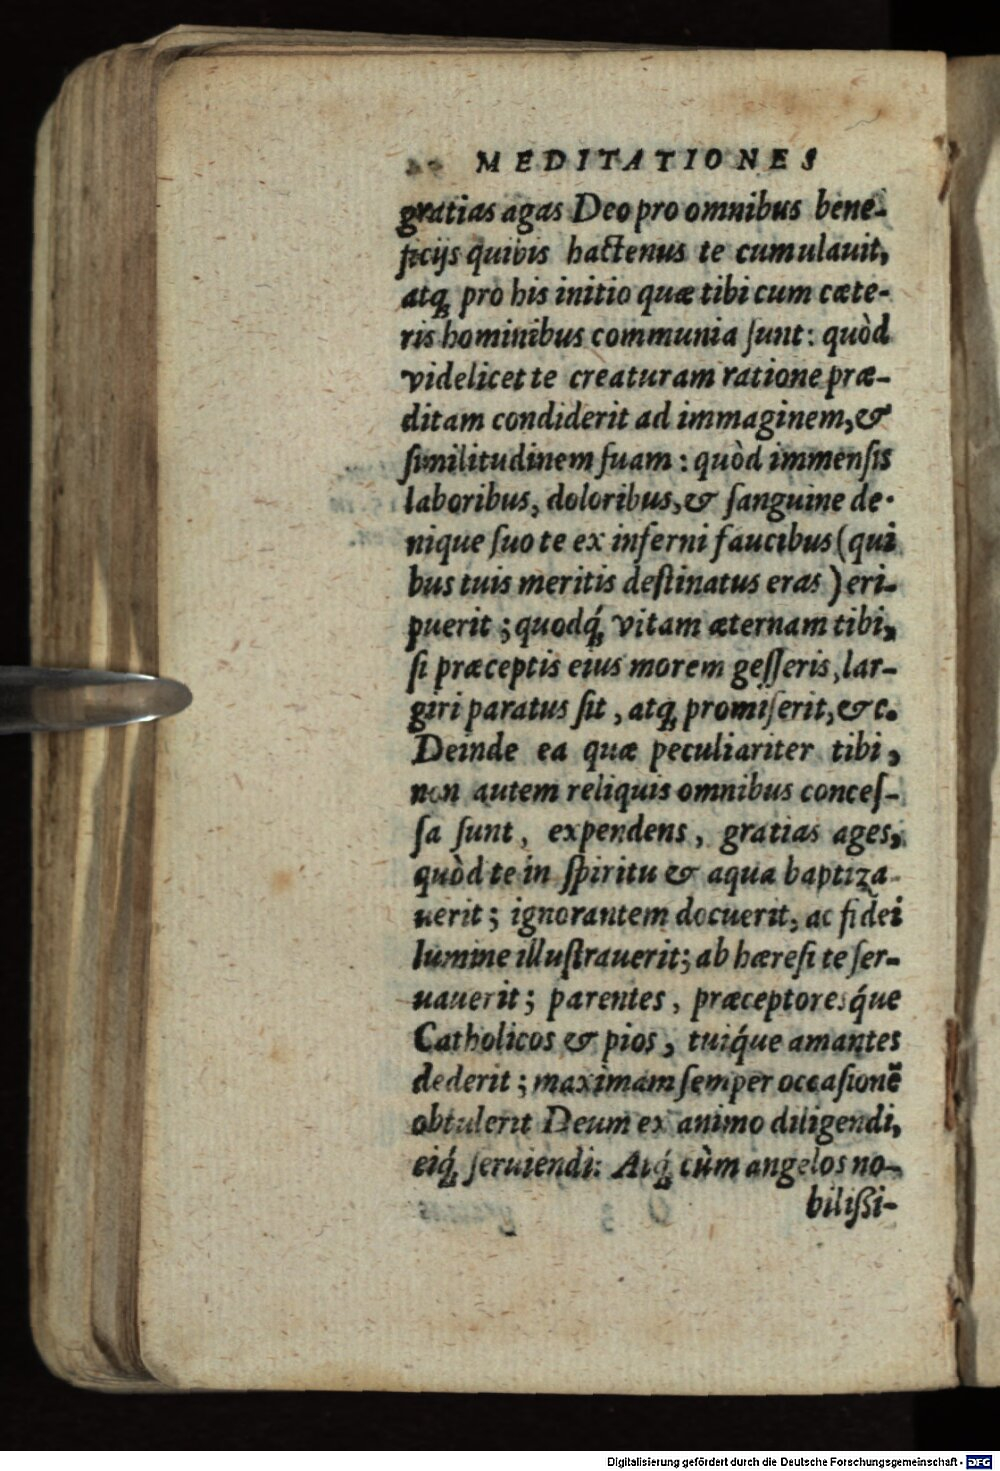 MEDITATIONES
gratias agas Deo pro omnibus bene-
ficijs quibis hactenus te cumulauit,
atq; pro his initio quæ tibi cum cæte-
ris hominibus communia ſunt: quòd
videlicet te creaturam ratione præ-
ditam condiderit ad immaginem, &
ſimilitudinem ſuam: quòd immenſis
laboribus, doloribus, & ſanguine de-
nique ſuo te ex inferni faucibus (qui
bus tuis meritis deſtinatus eras) eri-
puerit; quodq́; vitam æternam tibi,
ſi præceptis eius morem geſſeris, lar-
giri paratus ſit, atq; promiſerit, &c.
Deinde ea quæ peculiariter tibi,
non autem reliquis omnibus conceſ-
ſa ſunt, expendens, gratias ages,
quòd te in ſpiritu & aqua baptiza-
uerit; ignorantem docuerit, ac fidei
lumine illuſtrauerit; ab hæreſi te ſer-
uauerit; parentes, præceptoresq́ue
Catholicos & pios, tuiq́ue amantes
dederit; maximam ſemper occaſionē
obtulerit Deum ex animo diligendi,
eiq́; ſeruiendi: Atq́; cùm angelos no-
bilißi-
Digitalisierung gefördert durch die Deutsche Forschungsgemeinschaft - DFG